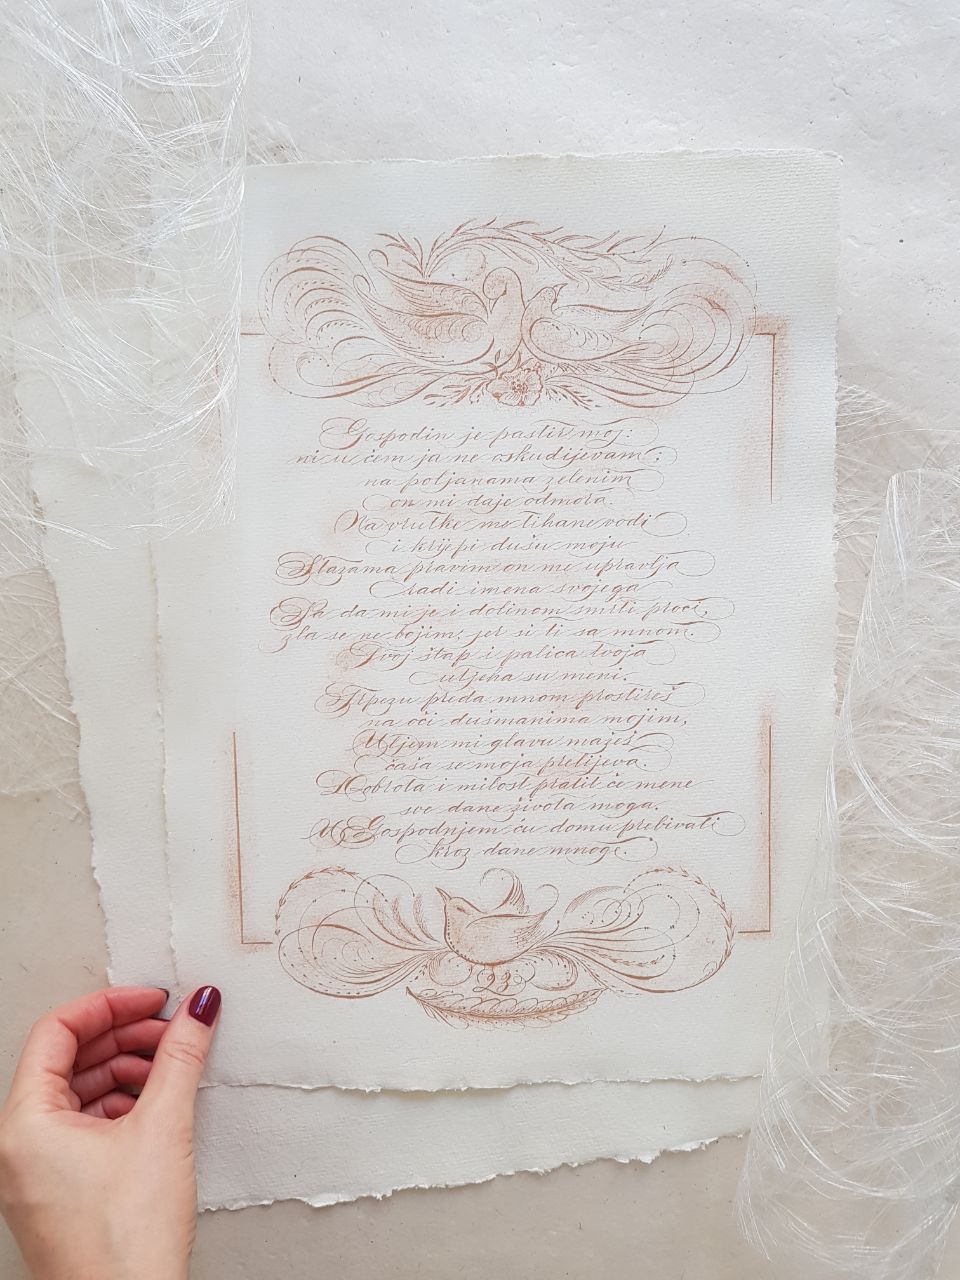 Gospodin je pastir moj:
ni u čem ja ne oskudijevam;
na poljanama zelenim
on mi daje odmora.
Na vrutke me tihane vodi
i krijepi dušu moju
Stazama pravim on me upravlja
radi imena svojega
Pa da mi je i dolinom smrti proći,
zla se ne bojim, jer si ti sa mnom.
Tvoj štap i palica tvoja
utjeha su meni.
Trpezu preda mnom prostireš
na oči dušmanima mojim,
Uljem mi glavu mažeš
čaša se moja prelijeva.
Dobrota i milost pratit će mene
sve dane života moga.
U Gospodnjem ću domu prebivati
kroz dane mnoge.
23